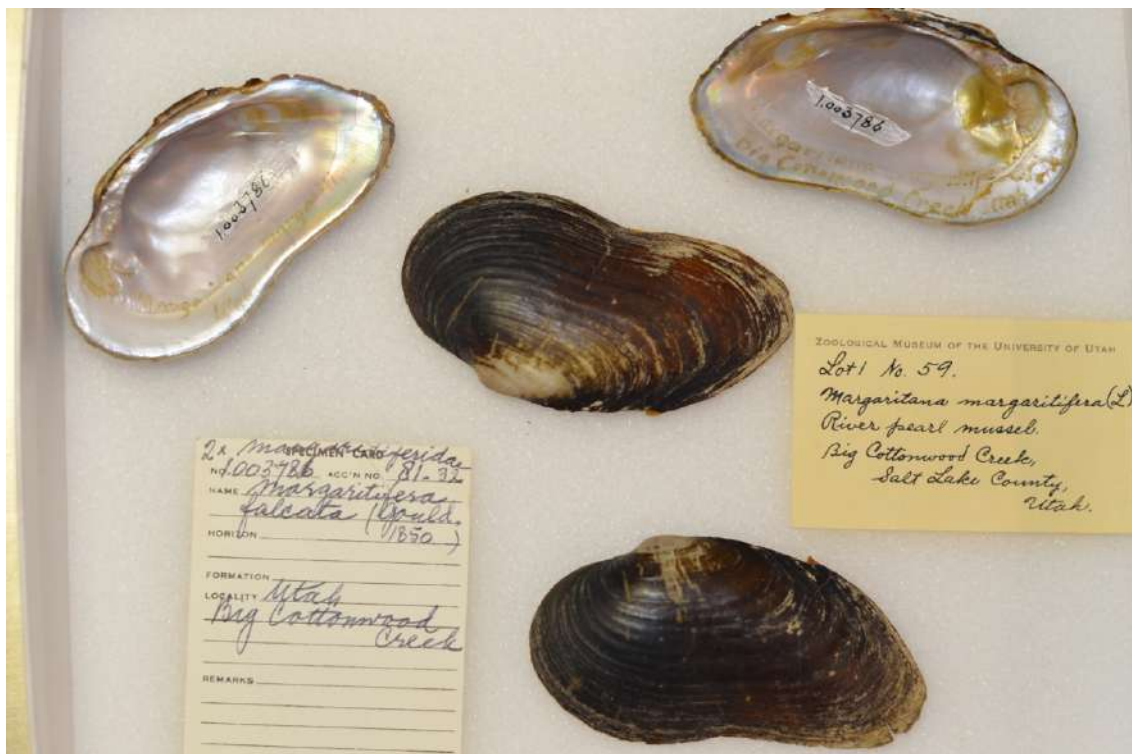 1.003786
1.003786
Big Cottonwood Creek
ZOOLOGICAL MUSEUM OF THE UNIVERSITY OF UTAH
Lot 1 No. 59.
Margaritana margaritifera (L)
River pearl mussel.
Big Cottonwood Creek,
Salt Lake County,
Utah.
2x margaritiferidae
SPECIMEN CARD
NO. 1.003786 ACC'N NO. 81.32
NAME Margaritifera
falcata (Gould,
1850)
HORIZON
FORMATION
LOCALITY Utah
Big Cottonwood
Creek
REMARKS